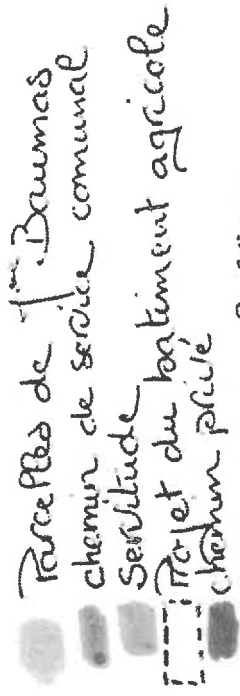 Parcelles de Mme Baumas
chemin de service comunal
Servitude
Projet du batiment agricole
chemin privé